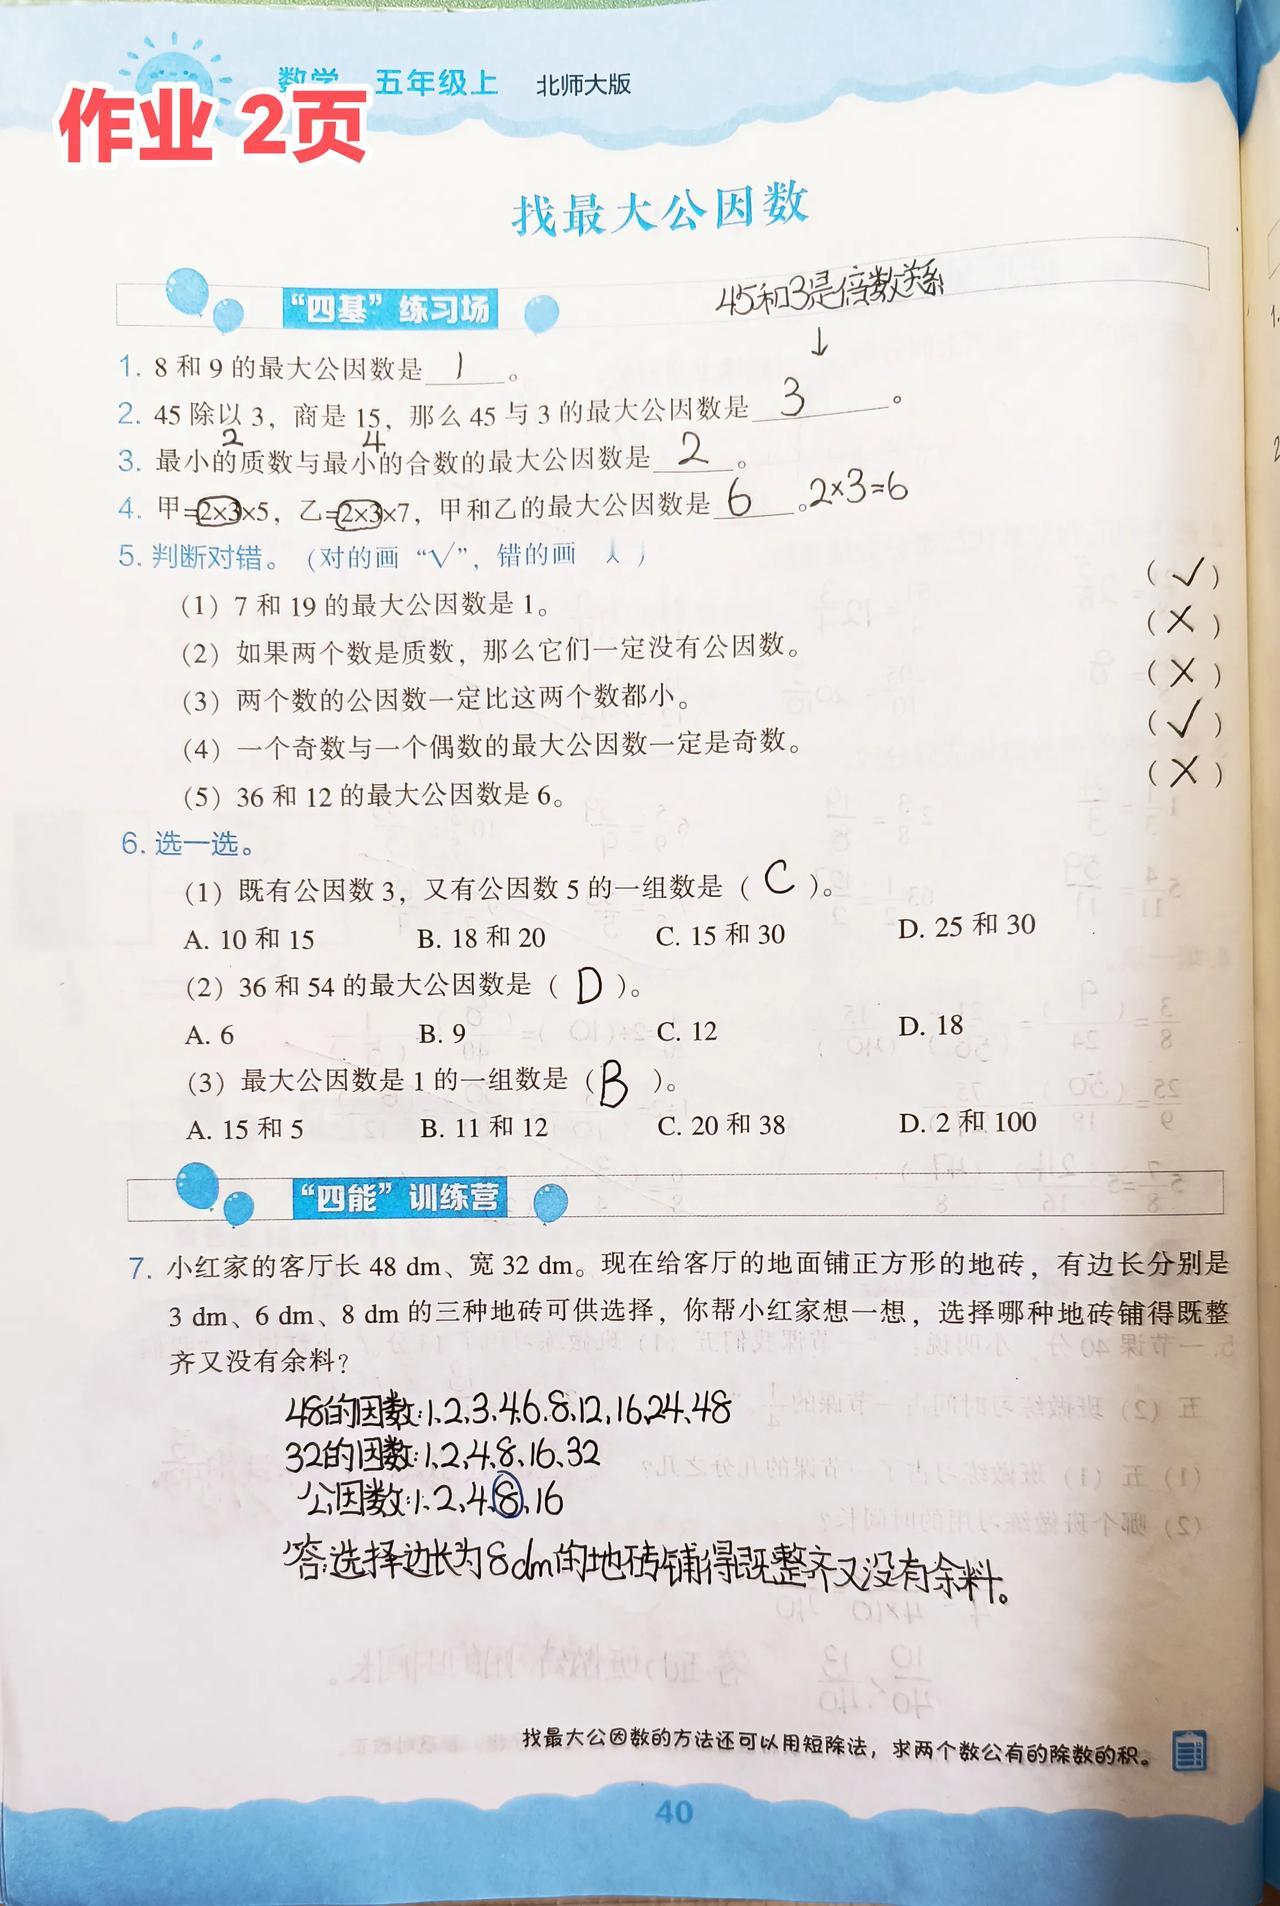 数学 五年级上 北师大版
作业 2页
找最大公因数
“四基”练习场
45和3是倍数关系
↓
1. 8 和 9 的最大公因数是 1 。
2. 45 除以 3，商是 15，那么 45 与 3 的最大公因数是 3 。
2 4
3. 最小的质数与最小的合数的最大公因数是 2 。
4. 甲=2×3×5，乙=2×3×7，甲和乙的最大公因数是 6 。2×3=6
5. 判断对错。（对的画“√”，错的画
(1) 7 和 19 的最大公因数是 1。 (√)
(2) 如果两个数是质数，那么它们一定没有公因数。 (×)
(3) 两个数的公因数一定比这两个数都小。 (×)
(4) 一个奇数与一个偶数的最大公因数一定是奇数。 (√)
(5) 36 和 12 的最大公因数是 6。 (×)
6. 选一选。
(1) 既有公因数 3，又有公因数 5 的一组数是（ C ）。
A. 10 和 15 B. 18 和 20 C. 15 和 30 D. 25 和 30
(2) 36 和 54 的最大公因数是（ D ）。
A. 6 B. 9 C. 12 D. 18
(3) 最大公因数是 1 的一组数是（ B ）。
A. 15 和 5 B. 11 和 12 C. 20 和 38 D. 2 和 100
“四能”训练营
7. 小红家的客厅长 48 dm、宽 32 dm。现在给客厅的地面铺正方形的地砖，有边长分别是
3 dm、6 dm、8 dm 的三种地砖可供选择，你帮小红家想一想，选择哪种地砖铺得既整
齐又没有余料？
48的因数:1、2、3、4、6、8、12、16、24、48
32的因数:1、2、4、8、16、32
公因数:1、2、4、8、16
答:选择边长为8dm的地砖铺得既整齐又没有余料。
找最大公因数的方法还可以用短除法，求两个数公有的除数的积。
40